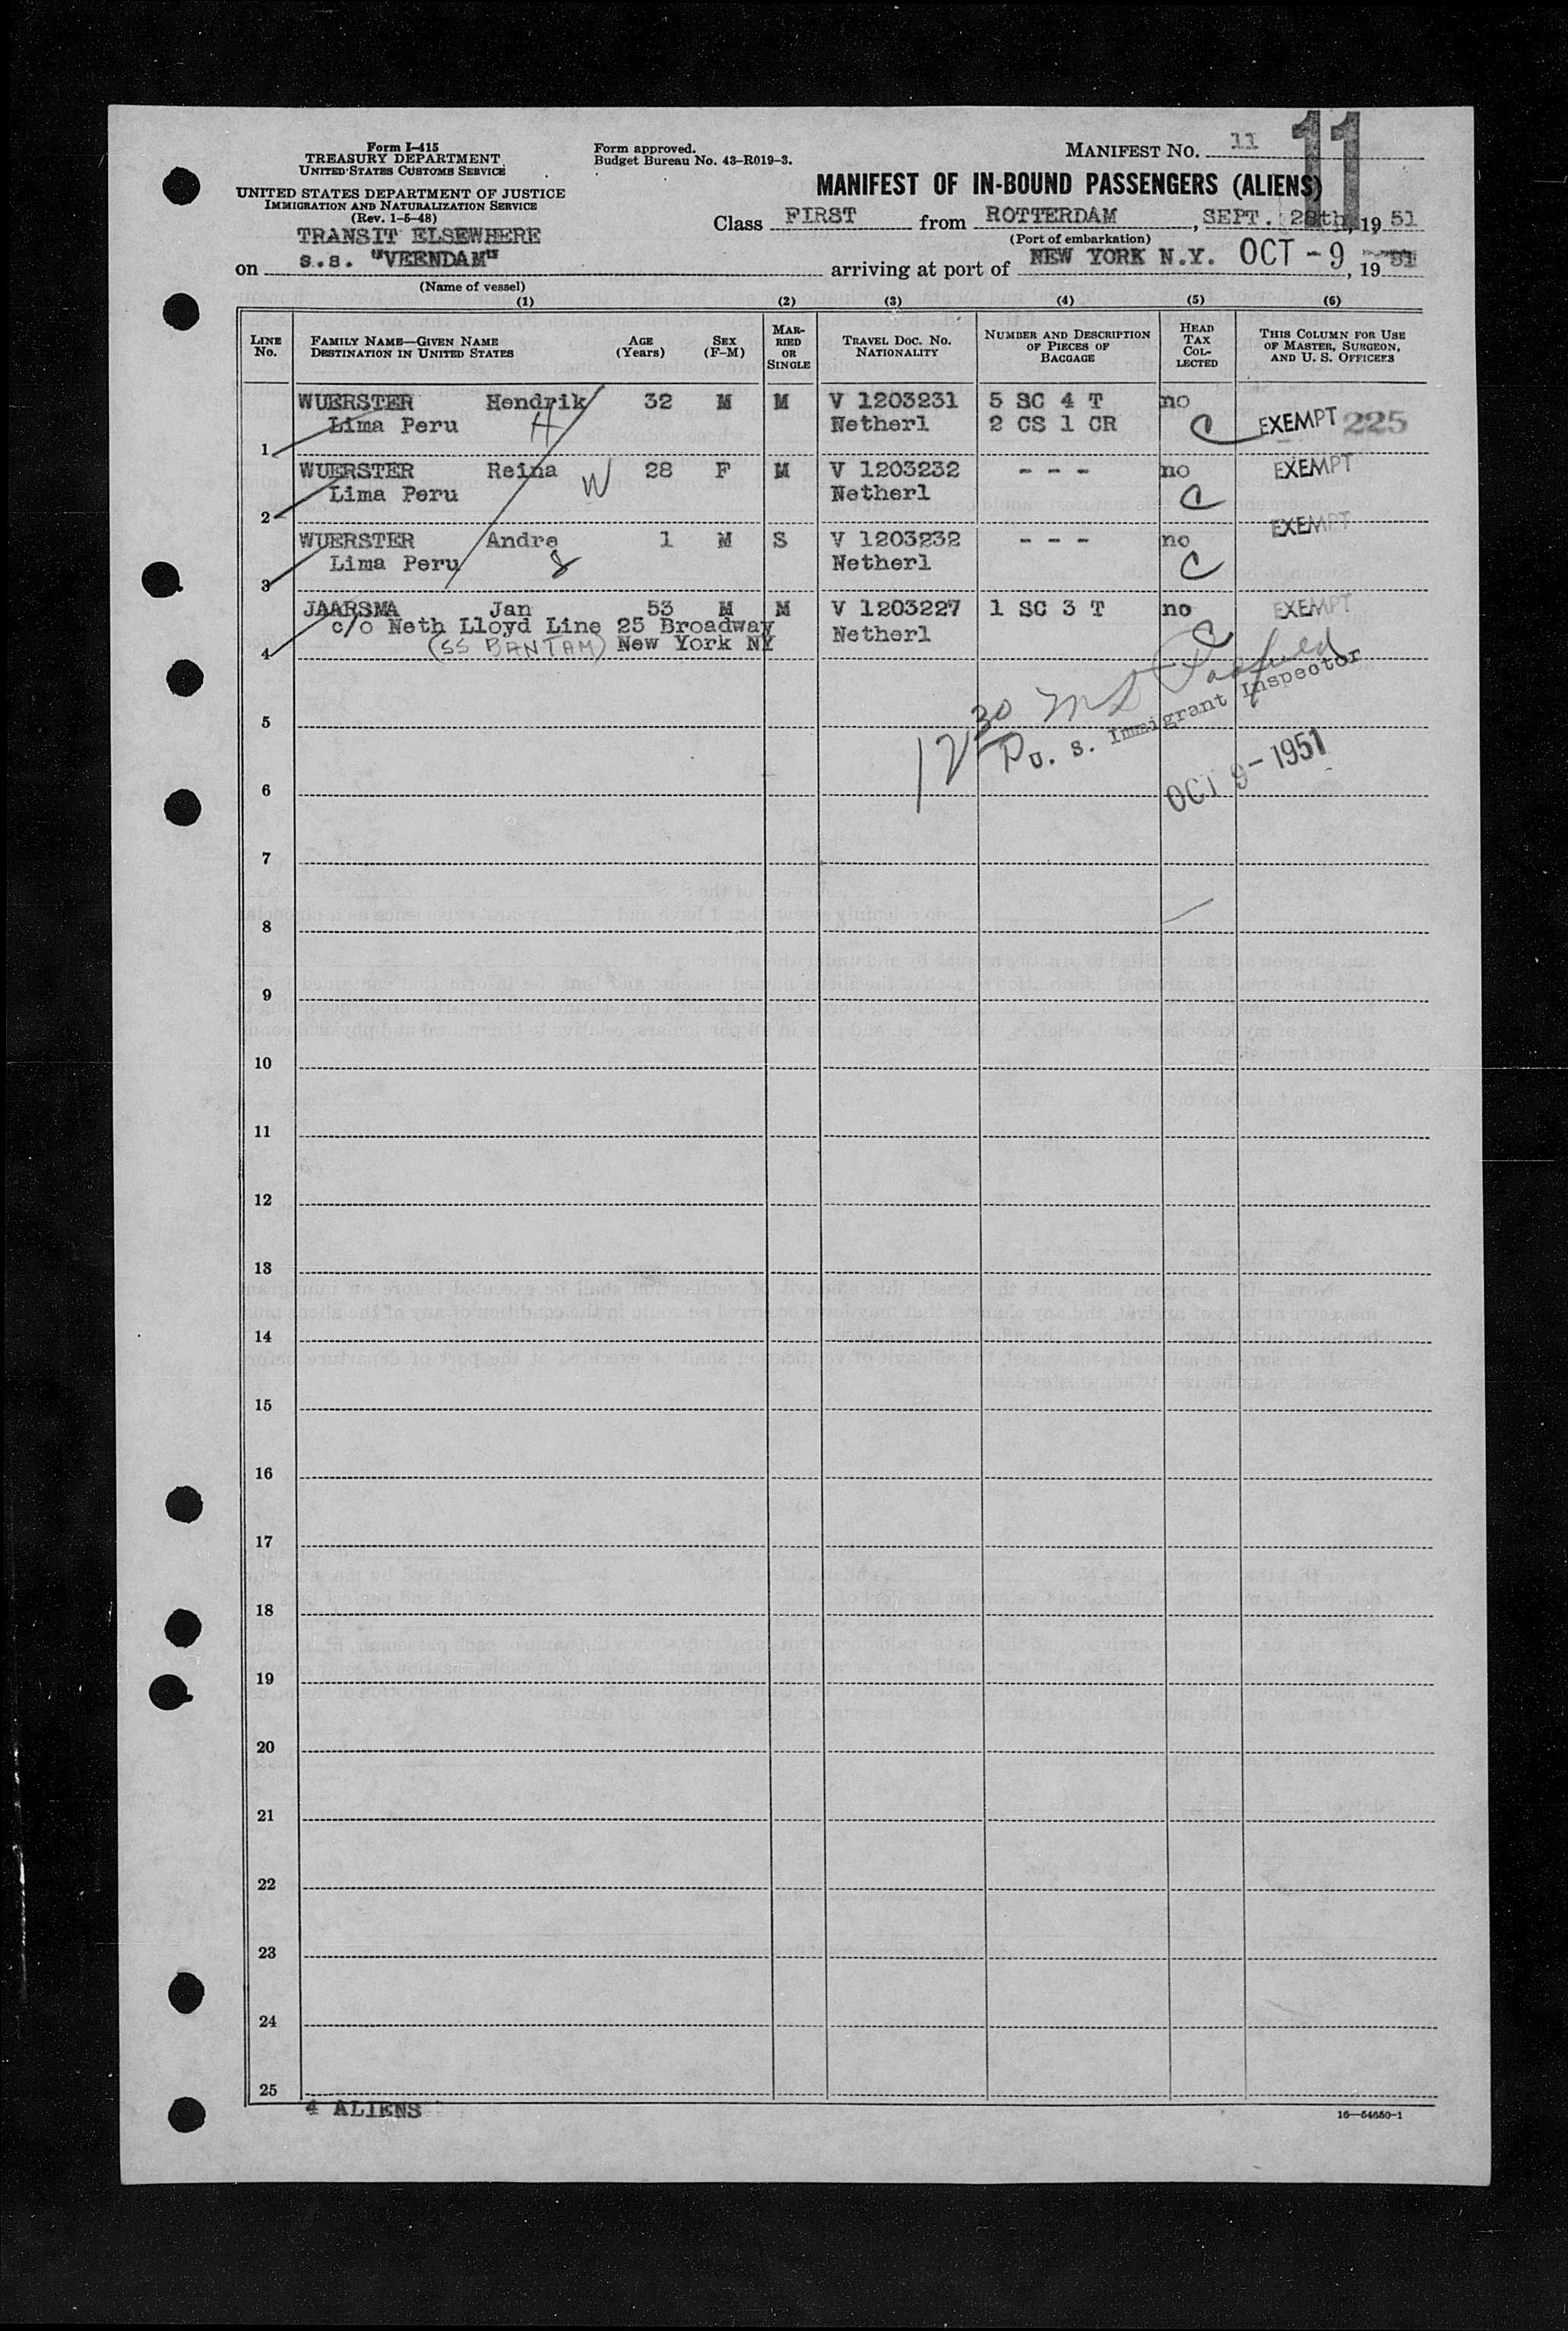 Form I-415
TREASURY DEPARTMENT
UNITED STATES CUSTOMS SERVICE
UNITED STATES DEPARTMENT OF JUSTICE
IMMIGRATION AND NATURALIZATION SERVICE
(Rev. 1-5-48)
TRANSIT ELSEWHERE
Form approved.
Budget Bureau No. 43-R019-3.
MANIFEST NO. 11
11
MANIFEST OF IN-BOUND PASSENGERS (ALIENS)
Class FIRST from ROTTERDAM, SEPT. 19 51
(Port of embarkation)
on s.s. "VEENDAM" arriving at port of NEW YORK N.Y. OCT - 9, 19 51
(Name of vessel)
(1) (2) (3) (4) (5) (6)
LINE No. FAMILY NAME—GIVEN NAME DESTINATION IN UNITED STATES AGE (Years) SEX (F-M) MARRIED OR SINGLE TRAVEL DOC. NO. NATIONALITY NUMBER AND DESCRIPTION OF PIECES OF BAGGAGE HEAD TAX COLLECTED THIS COLUMN FOR USE OF MASTER, SURGEON, AND U. S. OFFICERS
WUERSTER Hendrik 32 M M V 1203231 5 SC 4 T no
1 Lima Peru H Netherl 2 CS 1 CR C EXEMPT 225
WUERSTER Reina W 28 F M V 1203232 - - - no EXEMPT
2 Lima Peru Netherl C
WUERSTER Andre 1 M S V 1203232 - - - no EXEMPT
3 Lima Peru Netherl C
JAARSMA Jan 53 M M V 1203227 1 SC 3 T no EXEMPT
c/o Neth Lloyd Line 25 Broadway Netherl C
4 (SS BANTAM) New York NY
12 30 P
U. S. Immigrant Inspector
OCT 9 - 1951
5
6
7
8
9
10
11
12
13
14
15
16
17
18
19
20
21
22
23
24
25
4 ALIENS
16—54650-1